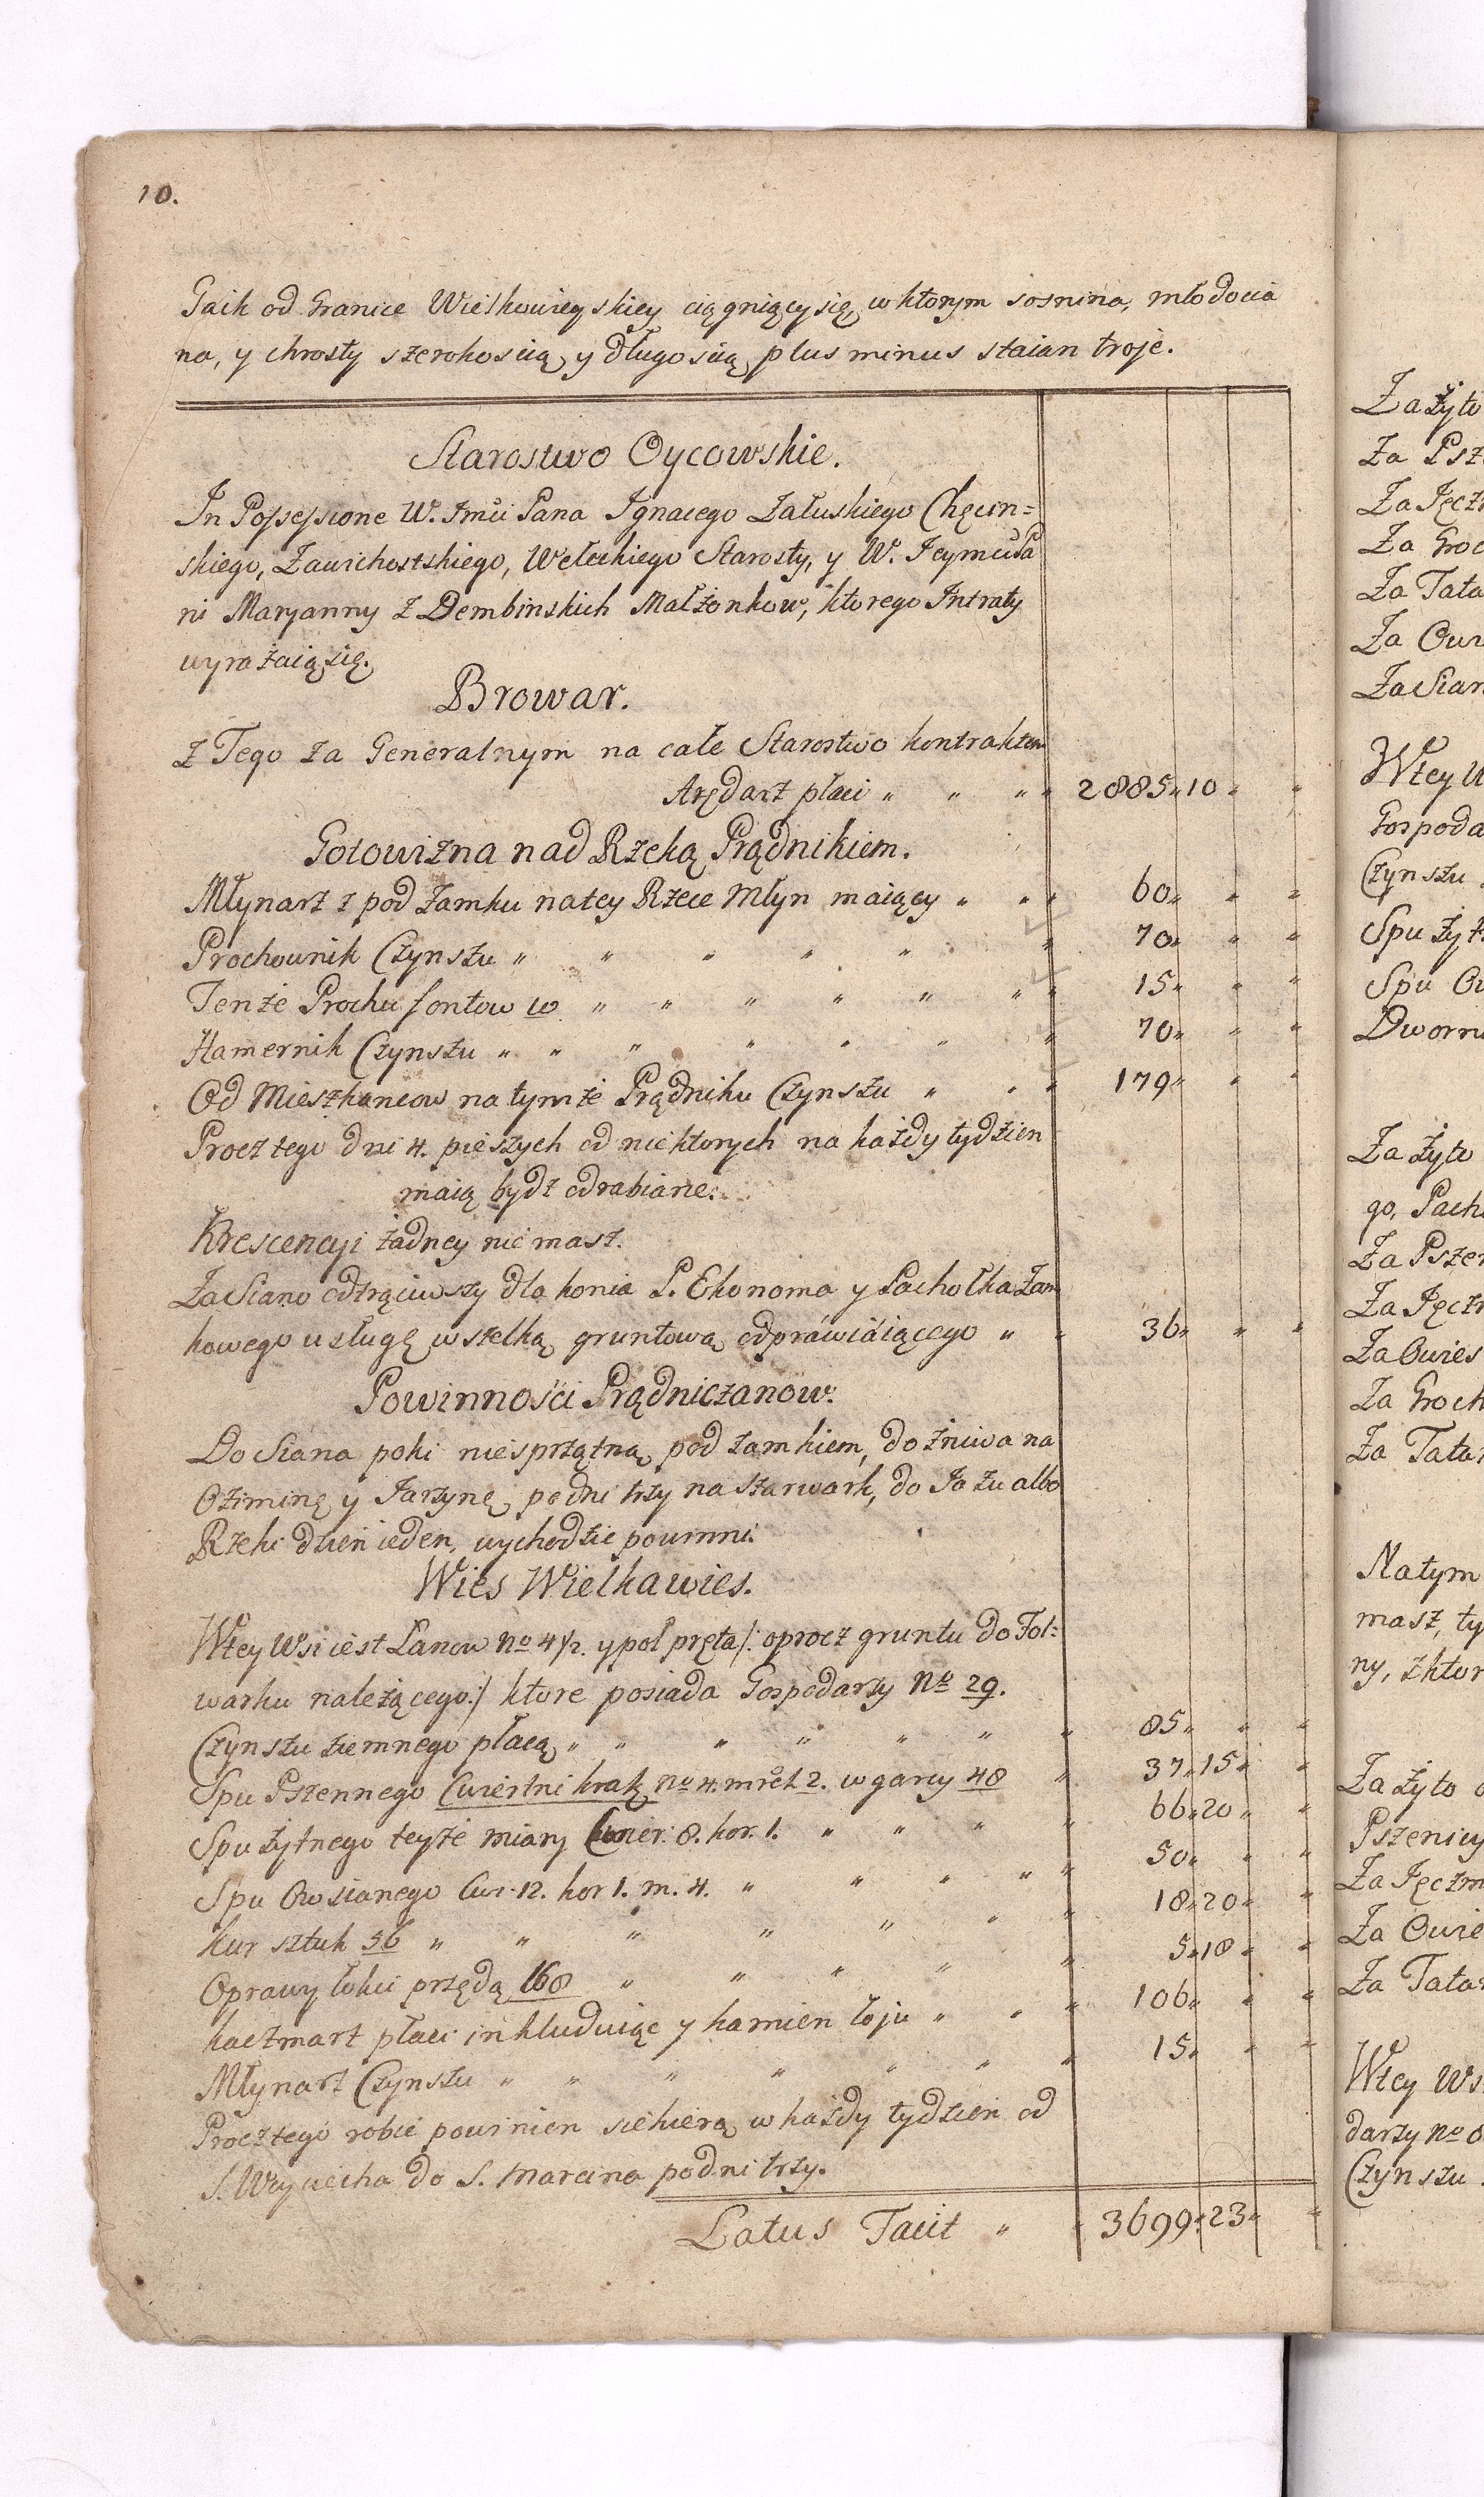 10.
Gaik od Granice Wielkowieyskiey ciągniący się, w ktorym sosnina, młodocia
na, y chrosty szerokoscią y długoscią plus minus staian troje.
Starostwo Oycowskie.
In Possessione W. Jmći Pana Ignacego Załuskiego Chęcin=
skiego, Zawichostskiego, Weleckiego Starosty, y W. Jeymći Pa
ni Maryanny z Dembinskich Małżonkow, ktorego Intraty
wyrażaią się.
Browar.
Z Tego za Generalnym na całe Starostwo kontraktem
Arędarz płaci " " " " 2885 " 10 " "
Gotowizna nad Rzeką Prądnikiem.
Młynarz z pod Zamku na tey Rzece Młyn maiący " " " 60 " " "
Prochownik Czynszu " " " " " " " 70 " " "
Tenże Prochu fontow 10 " " " " " " " 15 " " "
Hamernik Czynszu " " " " " " " 70 " " "
Od Mieszkancow na tymże Prądniku Czynszu " " " 179 " " "
Procz tego dni 4. pieszych od niektorych na każdy tydzien
maią bydz odrabiane.
Krescencyi żadney nie masz.
Za Siano odtrąciwszy dla konia P. Ekonoma y Pachołka Zam
kowego usługę wszelką gruntową odprawiaiącego " " 36 " " "
Powinności Prądniczanow.
Do Siana poki nie sprzątną pod zamkiem, do żniwa na
Oziminę y Jarzynę po dni trzy na szarwark, do Jazu albo
Rzeki dzień ieden, wychodzie powinni.
Wies Wielkawies.
W tey Wsi iest Łanow No 4 1/2. y poł pręta /: oprocz gruntu do Fol=
warku należącego :/ ktore posiada Gospodarzy No 29.
Czynszu ziemnego płacą " " " " " " " 85 " " "
Spu Pszennego Cwiertni krak. No 4. mrěk 2. w garcy 48 " 37 " 15 " "
Spu żytnego teyże miary Cwier. 8. kor. 1. " " " " 66 " 20 " "
Spu Owsianego Cwr. 12. kor 1. m. 4. " " " " " 50 " " "
Kur sztuk 56 " " " " " " " 18 " 20 " "
Oprawy łokci przędą 168 " " " " " 5 " 18 " "
Kaczmarz płaci inkluduiąc y kamien łoju " " " 106 " " "
Młynarz Czynszu " " " " " " " 15 " " "
Procz tego robić powinien siekierą w każdy tydzien od
S. Woyciecha do S. Marcina po dni trzy.
Latus Facit " " 3699 " 23 " "
Za żyto
Za Psz
Za Jęcz
Za Groc
Za Tata
Za Owi
Za Sian
W tey W
Gospoda
Czynszu
Spu żyt
Spu Ow
Dworn
Za żyto
go, Pach
Za Pszen
Za Jęcz
Za Owies
Za Groch
Za Tatar
Na tym
masz, ty
ny, z ktor
Za żyto o
Pszenicy
Za Jęczm
Za Owie
Za Tatar
W tey Ws
darzy No 8
Czynszu